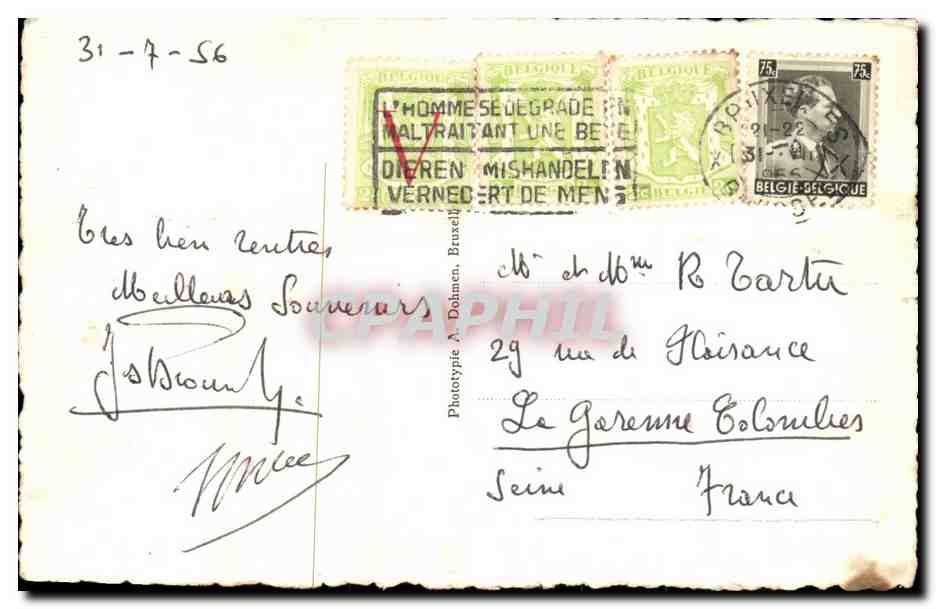 31-7-56
BELGIQUE BELGIQUE BELGIQUE
75c 75c
L'HOMME SE DEGRADE EN
MALTRAITANT UNE BETE
DIEREN MISHANDELEN
VERNEDERT DE MENS
BELGIE-BELGIQUE
21-22
Tres bien rentres
Meilleurs Souvenirs
Phototypie A. Dohmen, Bruxell
CPAPHIL
Mr et Mme R Tartu
29 rue de Plaisance
La Garenne Colombes
Seine France